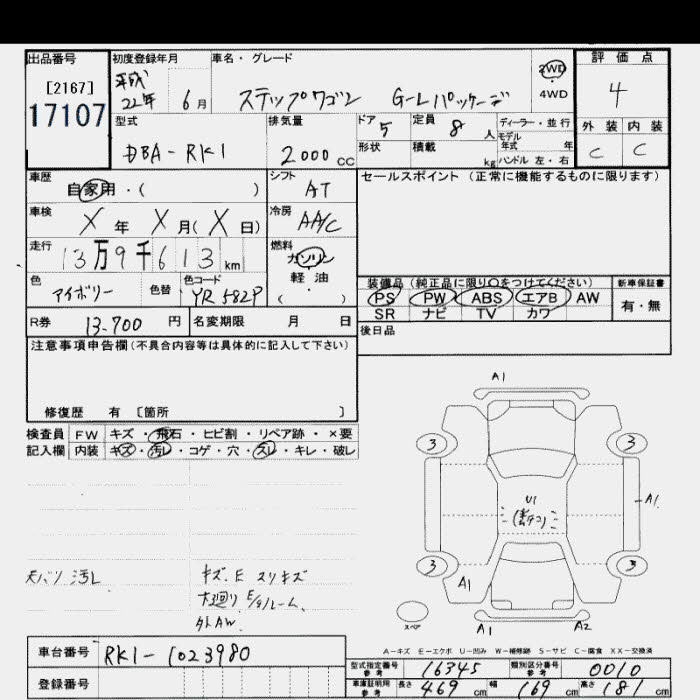 出品番号
[2167]
17107
初度登録年月
平成 22年 6月
車名・グレード
ステップワゴン G-Lパッケージ
2WD
4WD
評価点
4
外装 内装
C C
型式
DBA-RK1
排気量
2000 cc
ドア 5
形状
定員 8 人
積載 kg
ディーラー・並行
モデル
年式 年
ハンドル 左・右
車歴
自家用・( )
シフト
AT
セールスポイント (正常に機能するものに限ります)
車検
X 年 X 月(X 日)
冷房
AA/C
走行
13万9千613 km
燃料
ガソリン
軽油
( )
色
アイボリー
色替
色コード
YR582P
装備品 (純正品に限り○をつけてください)
PS PW ABS エアB AW
SR ナビ TV カワ
新車保証書
有・無
R券 13-700 円
名変期限 月 日
後日品
注意事項申告欄(不具合内容等は具体的に記入して下さい)
修復歴 有 〔箇所 〕
検査員 FW キズ・飛石・ヒビ割・リペア跡・×要
記入欄 内装 キズ・汚レ・コゲ・穴・スレ・キレ・破レ
天バリ 汚レ
キズ.E スリキズ
E/gルーム.
外AW.
A1
3 3
U1
A1
3 3
A1
スペア
A1 A2
A-キズ E-エクボ U-凹み W-補修跡 S-サビ C-腐食 XX-交換済
車台番号 RK1-1023980
登録番号
型式指定番号 参考 16345
類別区分番号 参考 0010
車庫証明用 参考 長さ 469 cm 幅 169 cm 高さ 181 cm